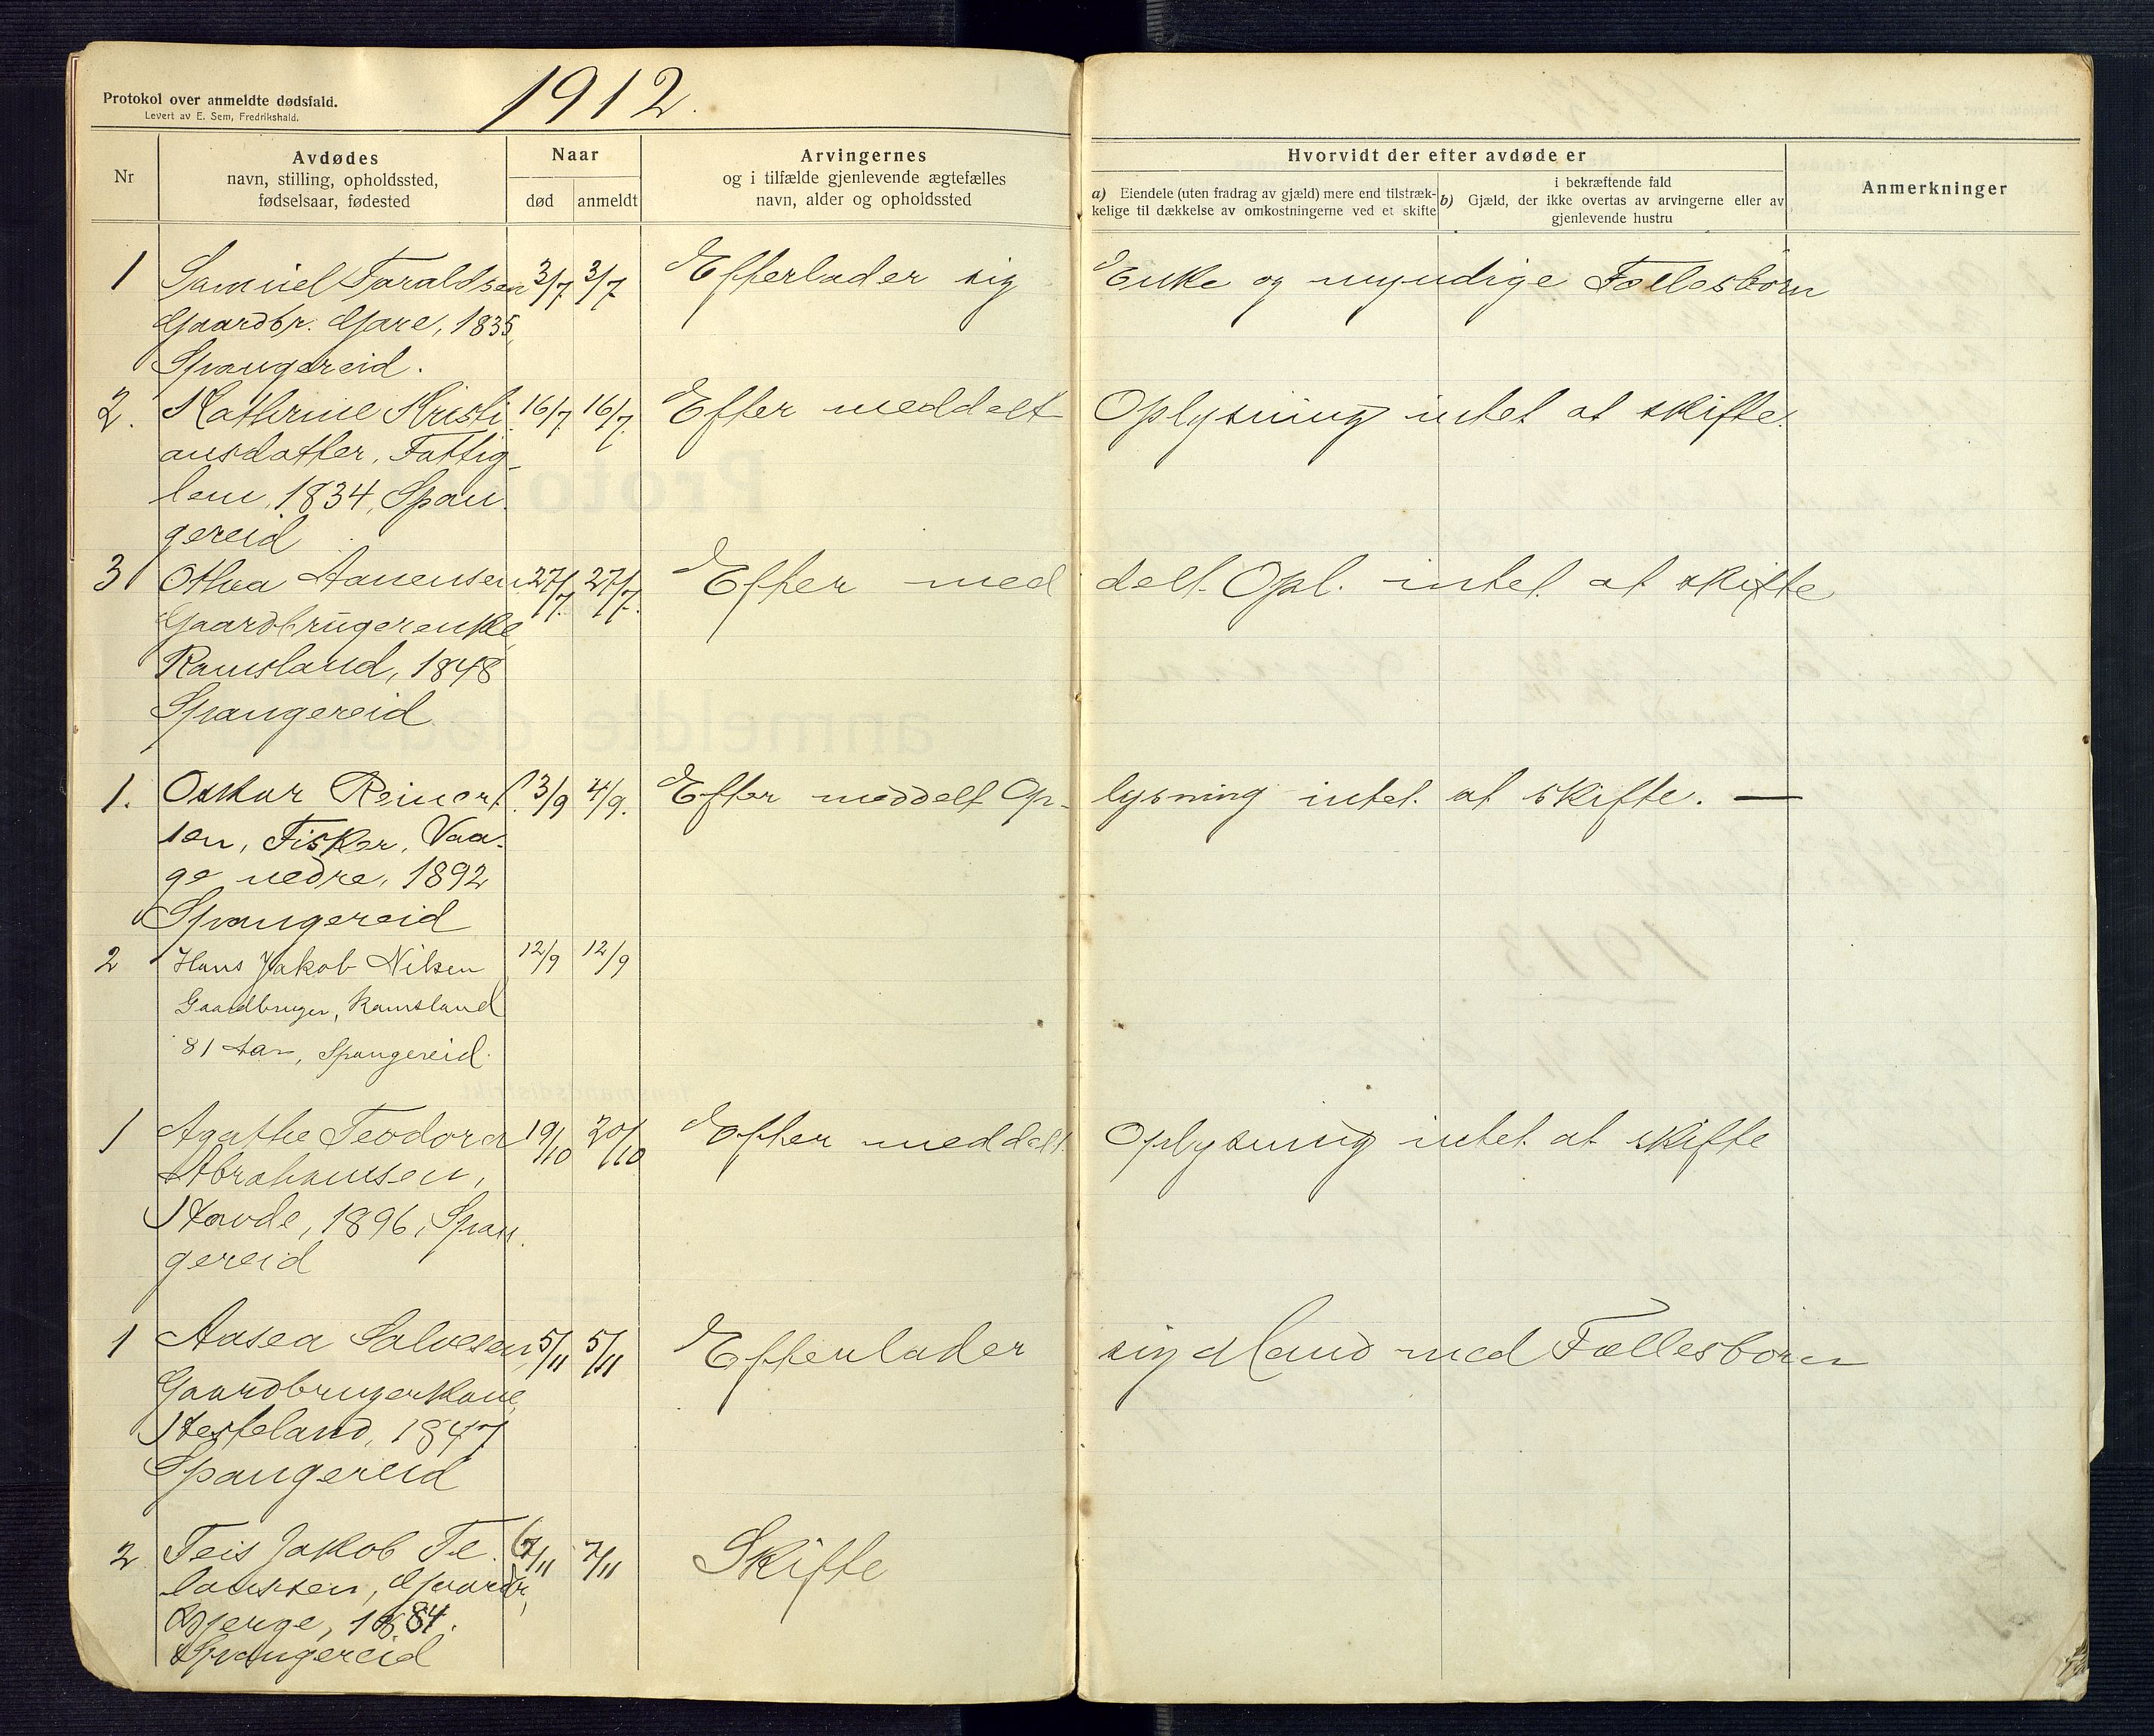 Protokol over anmeldte dødsfald.
Levert av E. Sem, Fredrikshald.
1912.
Nr
Avdødes
navn, stilling, opholdssted,
fødselsaar, fødested
Naar
død
anmeldt
Arvingernes
og i tilfælde gjenlevende ægtefælles
navn, alder og opholdssted
Hvorvidt der efter avdøde er
a) Eiendele (uten fradrag av gjæld) mere end tilstræk-
kelige til dækkelse av omkostningerne ved et skifte
i bekræftende fald
b) Gjæld, der ikke overtas av arvingerne eller av
gjenlevende hustru
Anmerkninger
1 Samuel Taraldsen 3/7 3/7 Efterlader sig Enke og myndige Fællesbørn
Gaardbr. Gare, 1835,
Spangereid.
2. Kathrine Kristi 16/7 16/7 Efter meddelt Oplysning intet at skifte.
ansdatter, Fattig-
lem, 1834, Span
gereid
3 Othea Aanensen 27/7 27/7 Efter med delt. Opl. intet at skifte
Gaardbrugerenke
Ramsland, 1848
Spangereid
1. Oskar Reinert 3/9 4/9. Efter meddelt Op- lysning intet at skifte. —
sen, Fisker, Vaa-
ge nedre, 1892
Spangereid
2 Hans Jakob Nilsen 12/9 12/9
Gaardbruger, Ramsland
81 Aar, Spangereid.
1 Agathe Teodora 19/10 20/10 Efter meddelt Oplysning intet at skifte
Abrahamsen,
Stavde, 1896, Span
gereid
1 Aasea Salvesen, 5/11 5/11 Efterlader sig Mand med Fællesbørn
Gaardbrugerkone,
Hesteland, 1847
Spangereid
2 Teis Jakob Te- 6/11 7/11 Skifte
Gaardbr,
Bjerge, 1884.
Spangereid